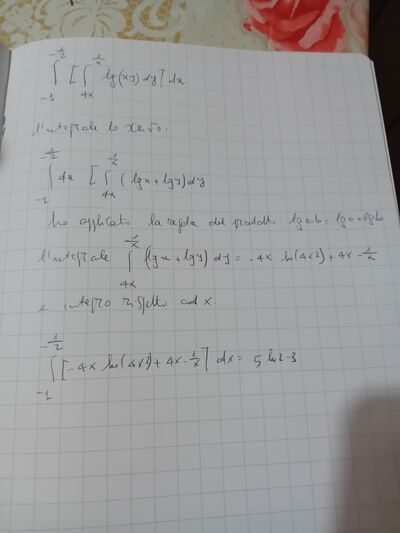 ∫_{-1}^{-1/2} [ ∫_{4x}^{1/x} lg(xy) dy ] dx
l'integrale lo
∫_{-1}^{-1/2} dx [ ∫_{4x}^{1/x} (lgx + lgy) dy
ho applicato la regola del prodotto lg a·b = lg a + lg b
l'integrale ∫_{4x}^{1/x} (lgx + lgy) dy = -4x ln(4x2) + 4x - 1/x
e integro rispetto ad x.
∫_{-1}^{-1/2} [-4x ln(4x2) + 4x - 1/x] dx = 5 ln2-3